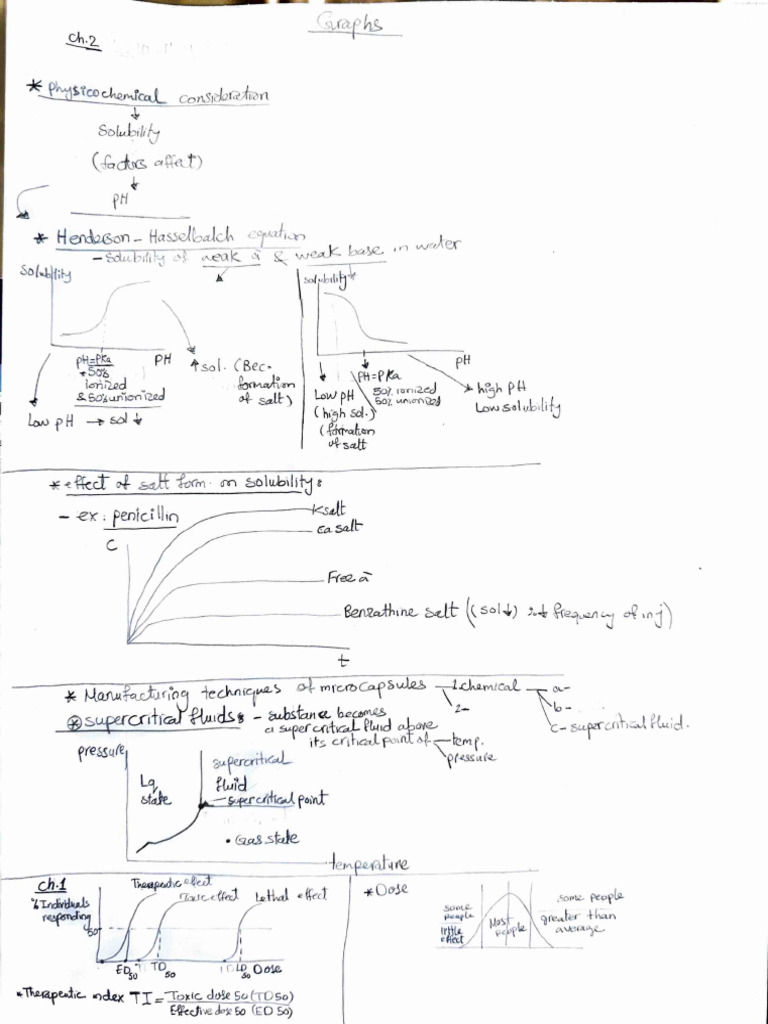 Graphs
Ch.2
* physicochemical consideration
Solubility
(factors affect)
PH
* Henderson - Hasselbalch equation
- Solubility of weak a & weak base in water
Solubility
PH=PKa
50%
ionized
& 50% unionized
PH
Low pH → sol ↓
↑ sol. (Bec.
formation
of salt)
solubility
PH
PH=PKa
50% ionized
50% unionized
Low pH
(high sol.)
(formation
of salt
high PH
Low solubility
* effect of salt form on solubility:
- ex: penicillin
C
K salt
Ca salt
Free a
Benzathine salt ((sol↓) frequency of inj)
t
* Manufacturing techniques of microcapsules 1 chemical a-
2- b-
c- supercritical fluid.
* supercritical fluids: - substance becomes
a supercritical fluid above
its critical point of temp.
pressure
pressure
Lq
state
supercritical
fluid
supercritical point
• Gas state
temperature
Ch.1
% Individuals
responding
50
Therapeutic effect
Toxic effect
Lethal effect
ED50
TD50
LD50
Dose
* Therapeutic index TI = Toxic dose 50 (TD 50)
Effective dose 50 (ED 50)
* Dose
some
people
little
effect
Most
people
some people
greater than
average